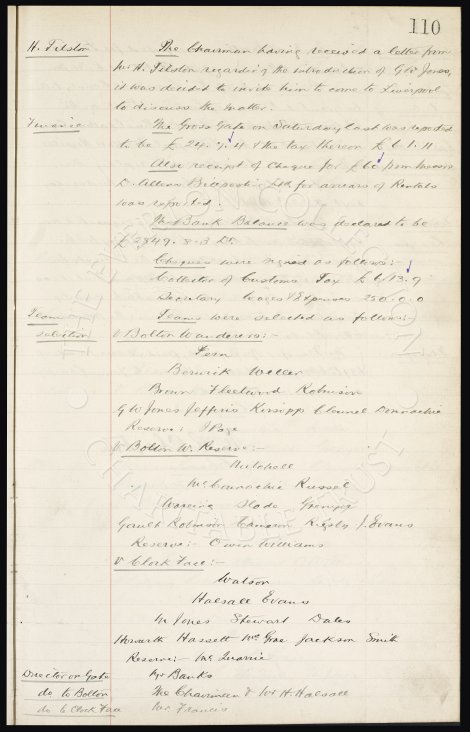 110
H. Tilston The Chairman having received a letter from
Mr H. Tilston regarding the introduction of G W Jones,
it was decided to invite him to come to Liverpool
to discuss the matter.
Finance The Gross Gate on Saturday last was reported
to be £ & the tax thereon £ 6. 1. 11
Also receipt of Cheque for £60 from Messrs
D. Allen Billposting Ltd for arrears of Rentals
was reported.
The Bank Balance was declared to be
£ 2849. 8. 3 Dr.
Cheques were signed as follows:-
Collector of Customs Tax £ 6/13. 9
Secretary Wages & Expenses 250. 0. 0
Team Teams were selected as follows:-
selection v Bolton Wanderers:-
Fern
Berwick Weller
Brown Fleetwood Robinson
G W Jones Jefferis Kirsopp Clennell Donnachie
Reserve: J Page
v Bolton W. Reserve:-
Mitchell
McConnachie Russel
Wareing Slade Grenyer
Gault Robinson Cameron Rigsby J. Evans
Reserve:- Owen Williams
v Clock Face:-
Watson
Halsall Evans
W Jones Stewart Dates
Howarth Hassett McGrae Jackson Smith
Reserve:- McQuarrie
Director on Gate Mr Banks
do to Bolton The Chairman & Mr H. Halsall
do to Clock Face Mr Francis